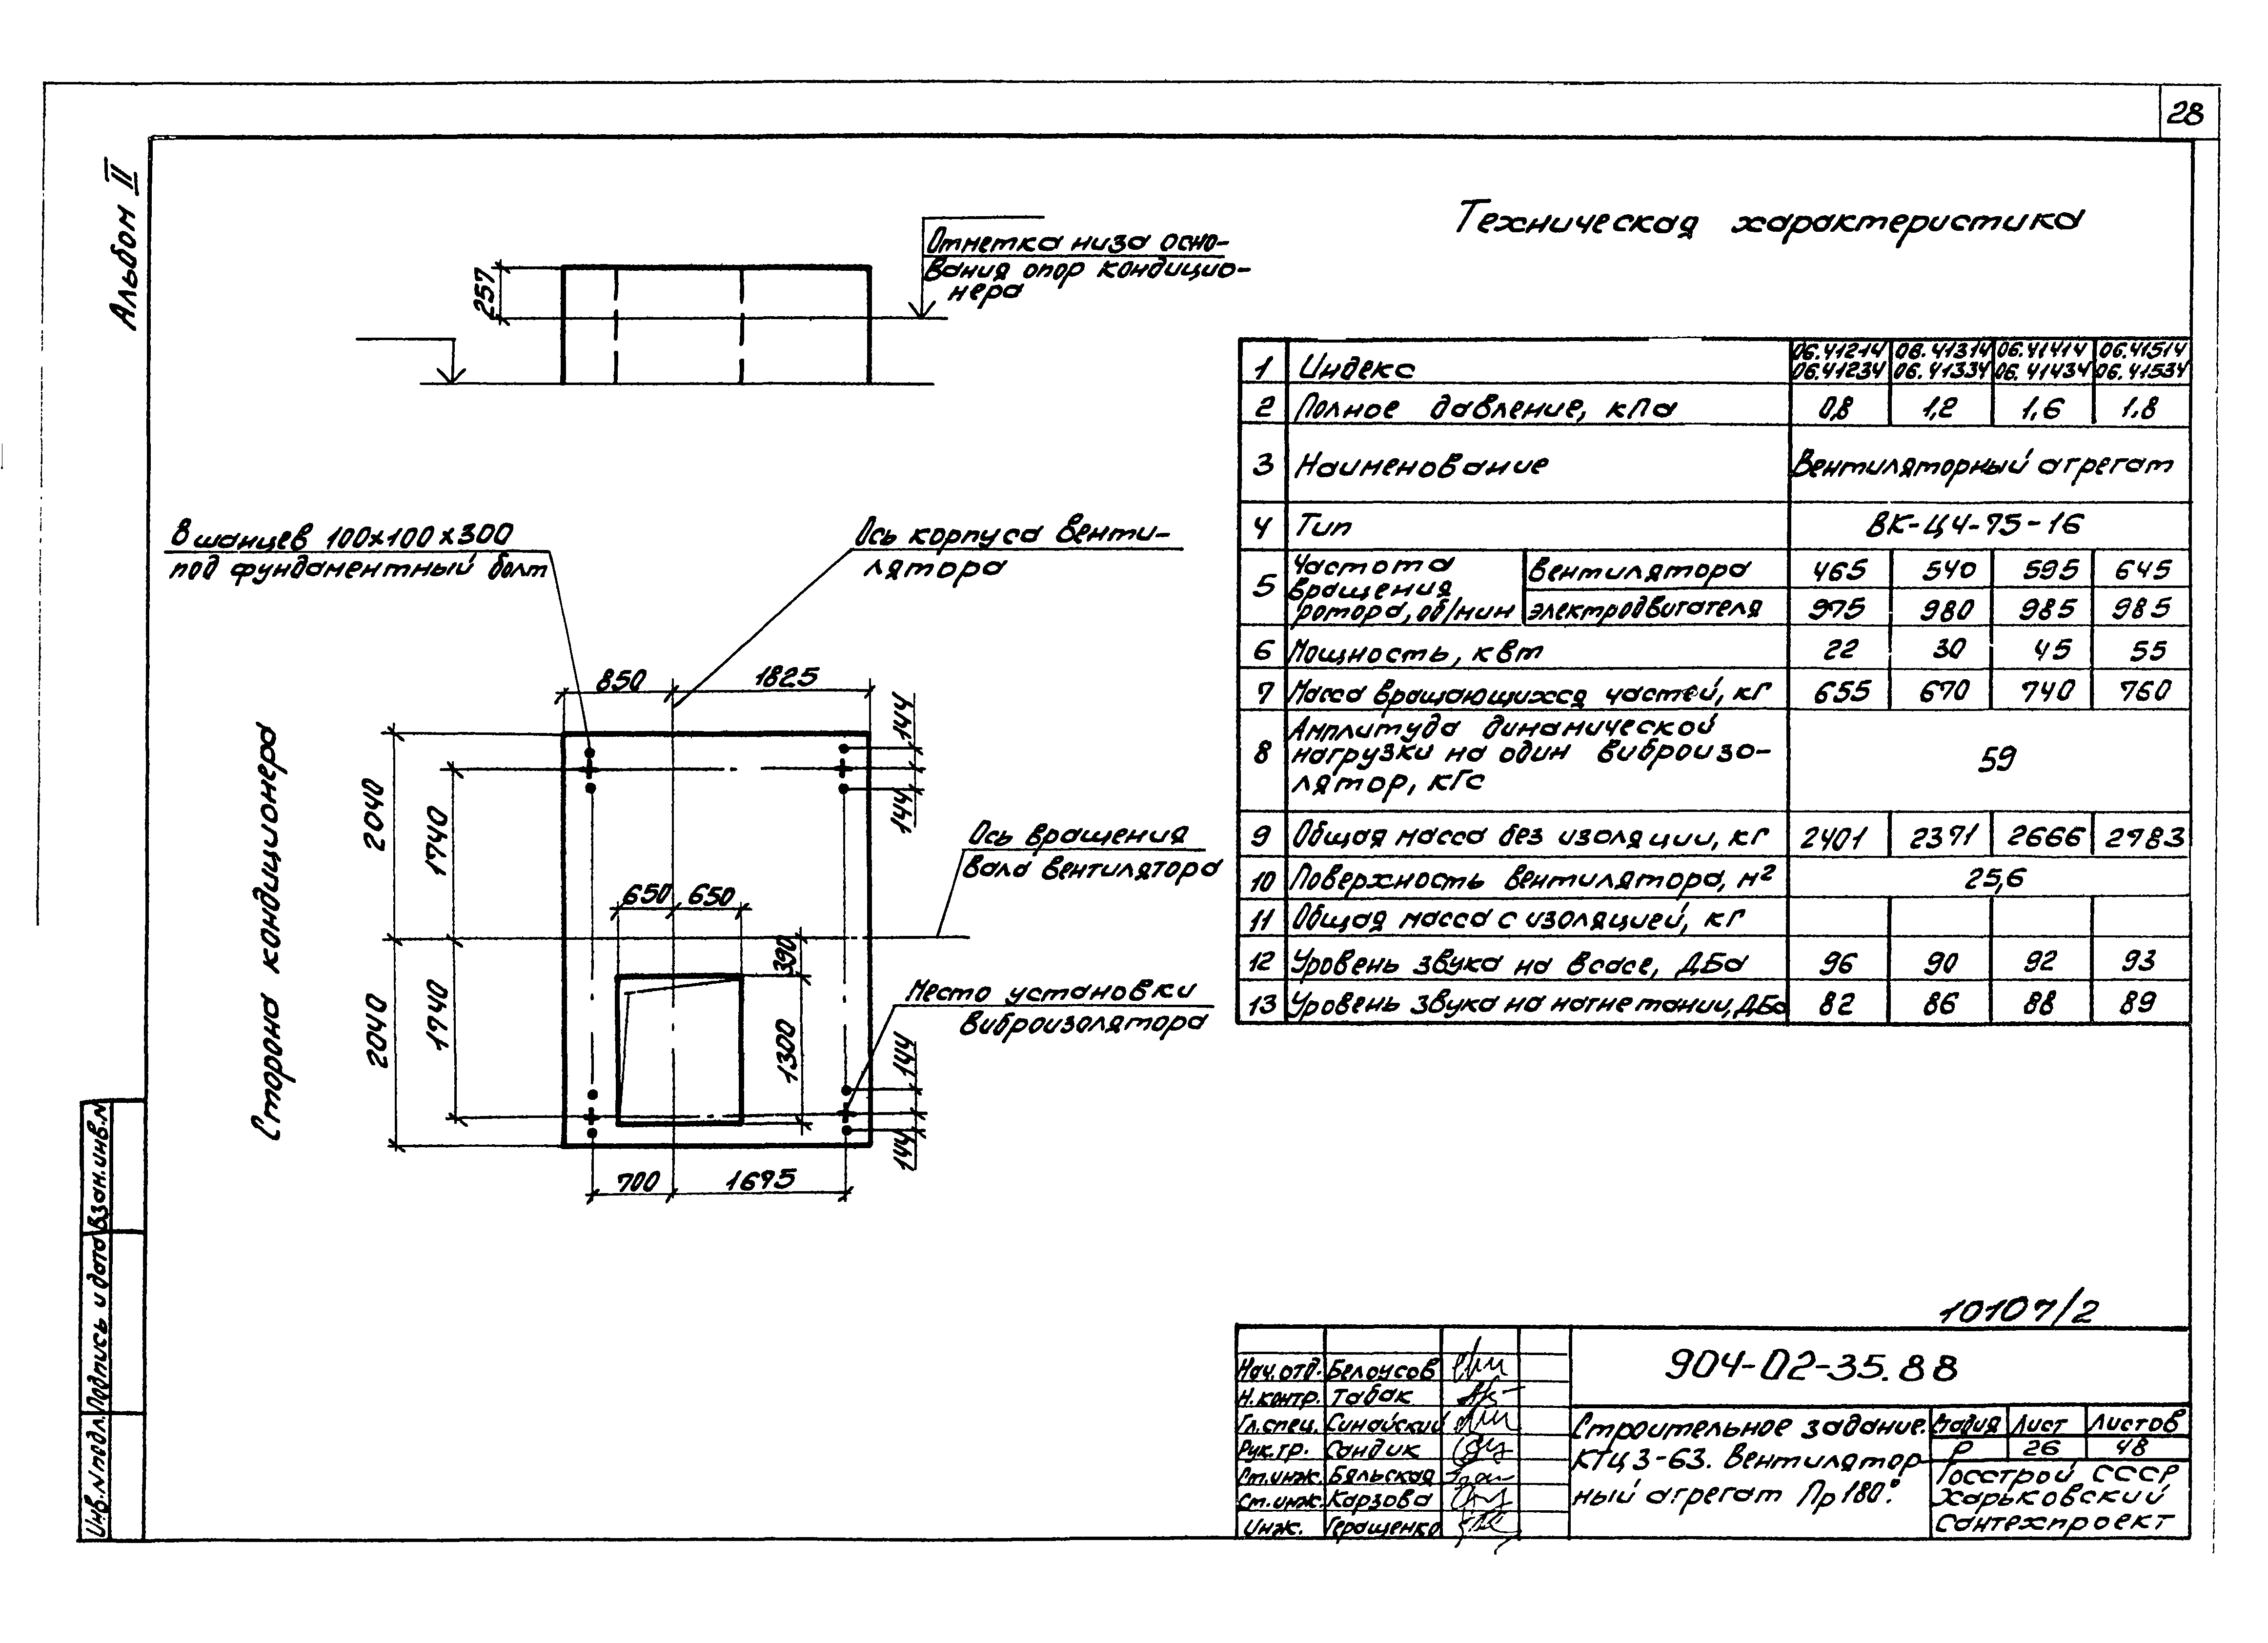 28
Альбом II
Техническая характеристика
Отметка низа осно-
вания опор кондицио-
нера
257
8 шанцев 100х100х300
под фундаментный болт
Ось корпуса венти-
лятора
850 1825
144
144
2040
1740
650 650
Ось вращения
вала вентилятора
390
Место установки
виброизолятора
1300
2040
1740
144
144
700 1695
Сторона кондиционера
1 Индекс 06.41214 06.41314 06.41414 06.41514
06.41234 06.41334 06.41434 06.41534
2 Полное давление, кПа 0,8 1,2 1,6 1,8
3 Наименование Вентиляторный агрегат
4 Тип ВК-Ц4-75-16
5 Частота вращения ротора, об/мин вентилятора 465 540 595 645
электродвигателя 975 980 985 985
6 Мощность, квт 22 30 45 55
7 Масса вращающихся частей, кг 655 670 740 760
8 Амплитуда динамической
нагрузки на один виброизо-
лятор, кГс 59
9 Общая масса без изоляции, кг 2401 2371 2666 2783
10 Поверхность вентилятора, м² 25,6
11 Общая масса с изоляцией, кг
12 Уровень звука на всасе, ДБа 96 90 92 93
13 Уровень звука на нагнетании, ДБа 82 86 88 89
10107/2
904-02-35.88
Нач. отд. Белоусов
Н. контр. Табак
Гл. спец. Синайский
Рук. гр. Сандик
Ст. инж. Бяльская
Ст. инж. Карзова
Инж. Геращенко
Строительное задание.
КТЦ 3-63. Вентилятор-
ный агрегат Пр 180°.
Стадия Лист Листов
Р 26 48
Госстрой СССР
Харьковский
Сантехпроект
Взам. инв. N
Подпись и дата
Инв. N подл.